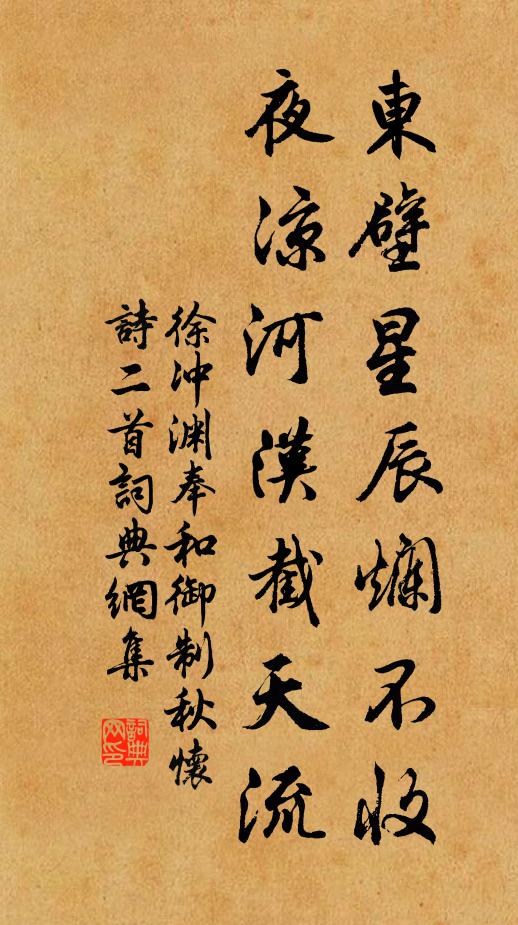 東壁星辰爛不收
夜涼河漢截天流
徐沖淵奉和御制秋懷
詩二首詞典網集
詞典網印